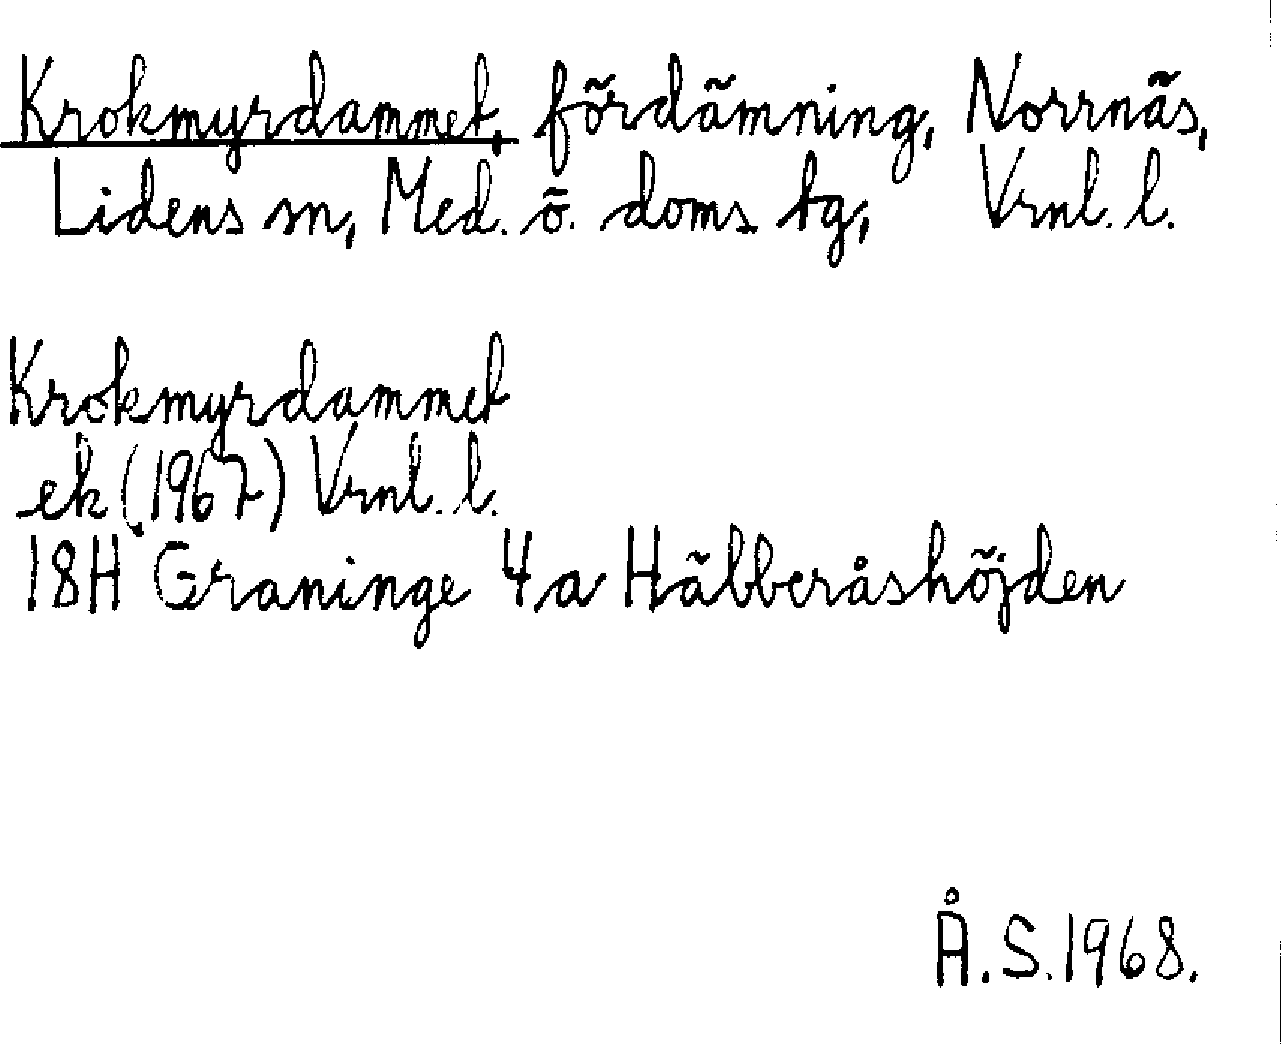 Krokmyrdammet, fördämning, Norrnäs,
Lidens sn, Med. ö. doms tg, Vrnl. l.
Krokmyrdammet
ek (1967) Vrnl. l.
18H Graninge 4a Häbberåshöjden
Å.S. 1968.